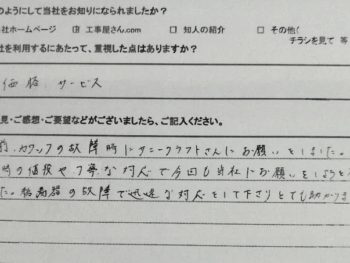 のようにして当社をお知りになられましたか?
社ホームページ ☑ 工事屋さん.com □ 知人の紹介 □ その他(
チラシを見て 等
社を利用するにあたって、重視した点はありますか?
価格、サービス
見・ご感想・ご要望などがございましたら、ご記入ください。
前、カワックの故障時にサニークラフトさんにお願いをしました。
時の値段や丁寧な対応で今回も当社にお願いをしようと
た。給湯器の故障で迅速な対応をして下さりとても助かりま